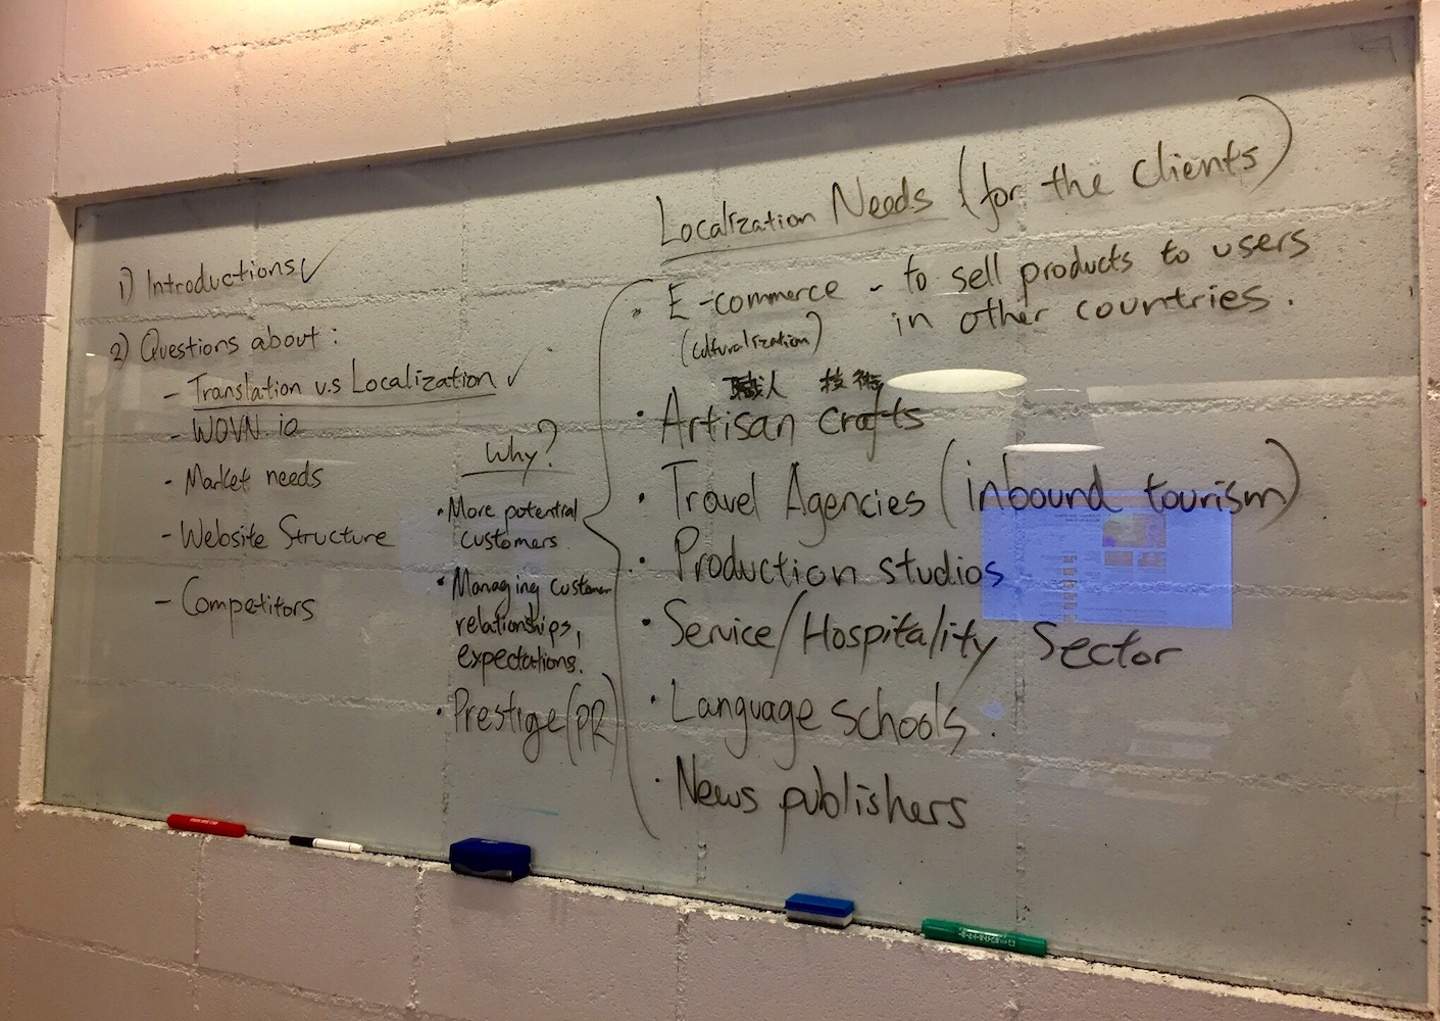 1) Introductions ✓
2) Questions about :
- Translation v.s Localization ✓
- WOVN.io
- Market needs
- Website Structure
- Competitors
Why?
• More potential
customers
• Managing customer
relationships,
expectations.
• Prestige (PR)
Localization Needs (for the clients)
• E-commerce - to sell products to users
in other countries.
(culturalization)
職人 技術
• Artisan crafts
• Travel Agencies (inbound tourism)
• Production studios
• Service/Hospitality Sector
• Language schools.
• News publishers